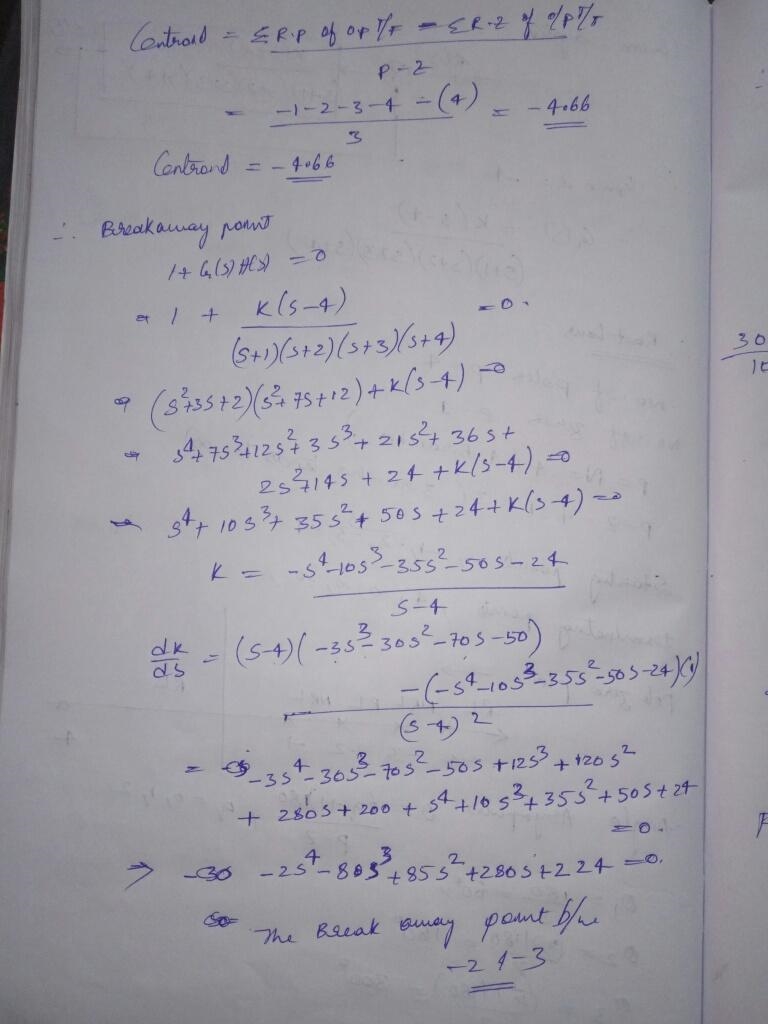 Centroid = Σ R.P of OP T/F - Σ R.Z of O/P T/F
P-Z
= -1-2-3-4 -(4) = -4.66
3
Centroid = -4.66
∴ Breakaway point
1+G(s)H(s) = 0
1 + K(s-4) = 0.
(s+1)(s+2)(s+3)(s+4)
⇒ (s²+3s+2)(s²+7s+12)+K(s-4) = 0
⇒ s⁴+7s³+12s²+3s³+21s²+36s+
2s²+14s+24+K(s-4) = 0
⇒ s⁴+10s³+35s²+50s+24+K(s-4) = 0
K = -s⁴-10s³-35s²-50s-24
s-4
dk/ds = (s-4)(-3s³-30s²-70s-50)
-(-s⁴-10s³-35s²-50s-24)(1)
(s-4)²
= -3s⁴-30s³-70s²-50s+12s³+120s²
+280s+200+s⁴+10s³+35s²+50s+24
= 0.
⇒ -2s⁴-80s³+85s²+280s+224 = 0.
The Break away point b/w
-2 & -3
30
10